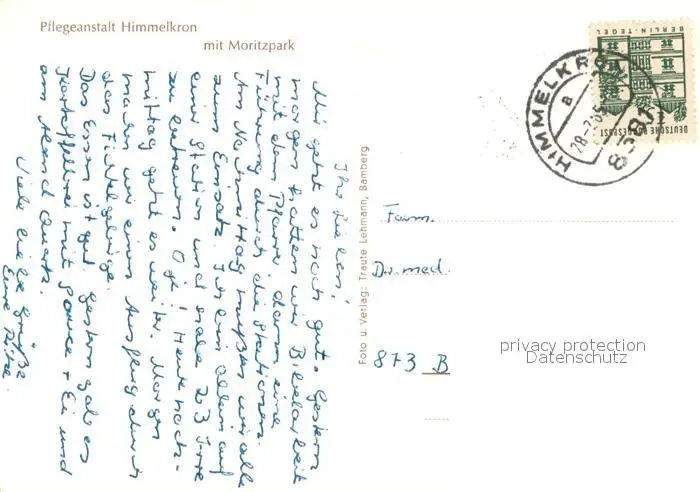 Pflegeanstalt Himmelkron
mit Moritzpark
Ihr Lieben!
Mir geht es noch gut. Gestern
morgen hatten wir Bibelarbeit
mit dem Pfarrer, dann eine
Führung durch die Stationen.
Am Nachmittag mußten wir alle
zum Einsatz. Ich bin allein auf
einer Station und habe 23 Irre
zu betreuen. Oje! Heute nach-
mittag geht es weiter. Morgen
machen wir einen Ausflug durch
das Fichtelgebirge.
Das Essen ist gut. Gestern gab es
Kartoffelbrei mit Sauce + Ei und
am Abend Quark.
Viele liebe Grüße
Eure
Foto u. Verlag: Traute Lehmann, Bamberg
BERLIN-TEGEL
DEUTSCHE BUNDESPOST
HIMMELKRON
a
8581
Fam.
Dr. med.
873 B
privacy protection
Datenschutz